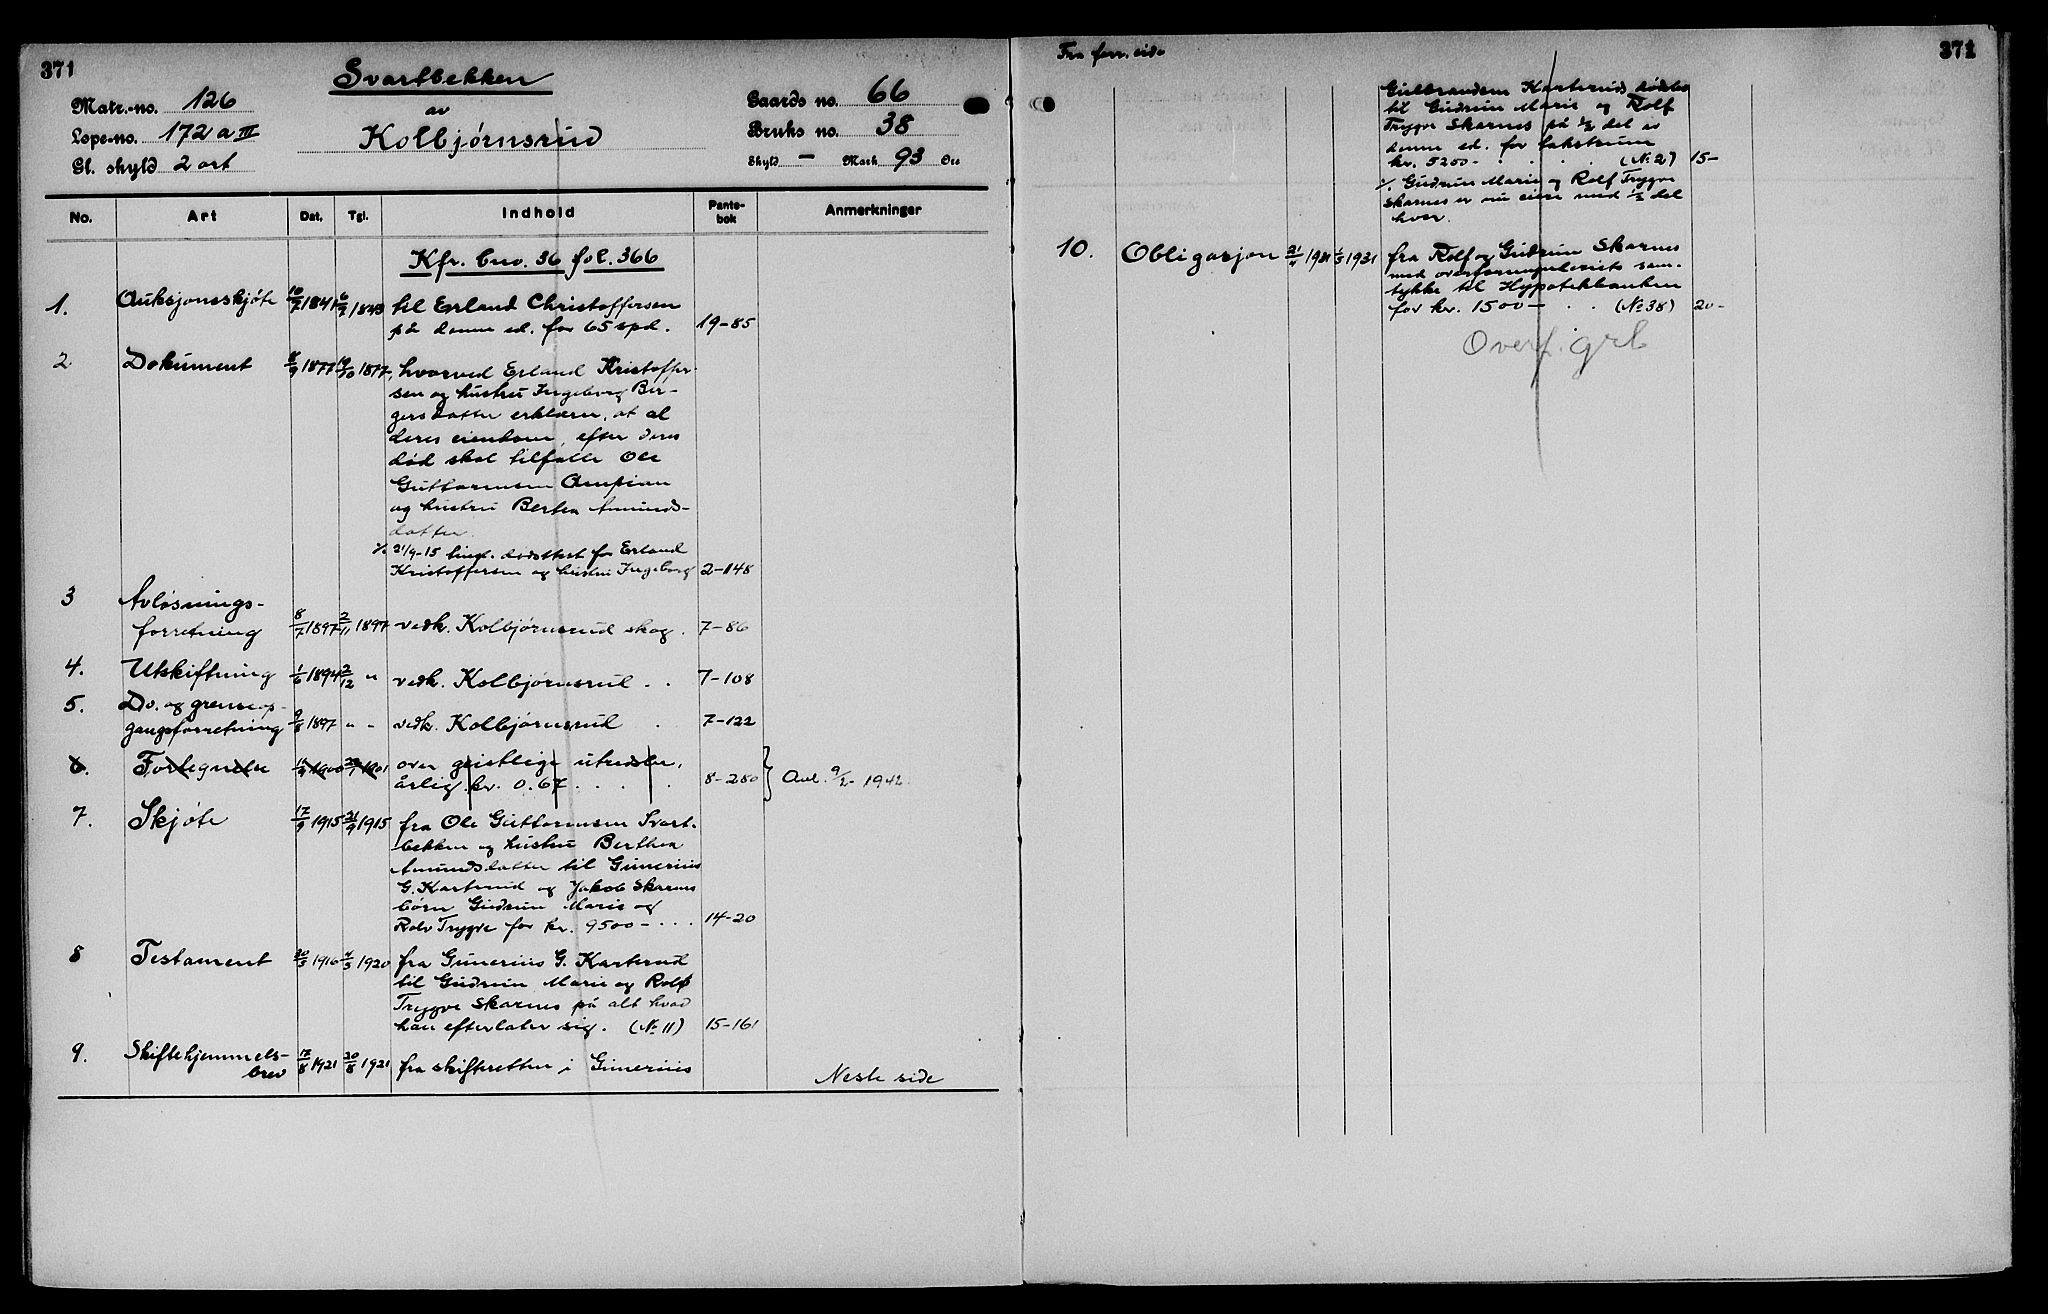 371
Svartbekken
av
Kolbjørnsrud
Matr.-no. 126
Løpe-no. 172 a III
Gl. skyld 2 ort
Gaards no. 66
Bruks no. 38
Skyld — Mark 93 Øre
No. Art Dat. Tgl. Indhold Pante-bok Anmerkninger
Kfr. brv. 36 fol. 366
1. Auksjonsskjøte 10/7 1841 6/2 1843 til Erland Christoffersen
på denne ed. for 65 spd. 19-85
2 Dokument 8/9 1877 19/10 1877, hvorved Erland Kristoffer-
sen og hustru Ingeborg Ber-
gersdatter erklærer, at al
deres eiendom, efter deres
død skal tilfalle Ole
Guttormsen
og hustru Berthea Amunds-
datter.
%. 21/9-15 tingl. dødsattest for Erland
Kristoffersen og hustru Ingeborg 2-148
3 Avløsnings-
forretning 8/7 1897 2/11 1897 vedk. Kolbjørnsrud skog. 7-86
4. Utskiftning 1/6 1894 2/12 " vedk. Kolbjørnsrud . . 7-108
5. Do. og grenseop-
gangsforretning 9/8 1897 " - vedk. Kolbjørnsrud . 7-122
6. Fortegnelse 15/9 1900 29/7 1901 over geistlige utredsler,
årlig kr. 0.67 . . . . 8-280 } Avl. 9/2- 1942.
7. Skjøte 17/9 1915 21/9 1915 fra Ole Guttormsen Svart-
bekken og hustru Berthea
Amundsdatter til Gunerius
G. Karterud og Jakob Skarnes
børn Gudrun Marie og
Rolv Trygve for kr. 9500- . . . 14-20
8 Testament 20/3 1916 4/5 1920 fra Gunerius G. Karterud
til Gudrun Marie og Rolf
Trygve Skarnes på alt hvad
han efterlater sig. (No 11) 15-161
9. Skiftehjemmels-
brev 17/8 1921 20/8 1921 fra skifteretten i Gunerius
Neste side
Fra forr. side
371
Gulbrandsen Karteruds dødsbo
til Gudrun Marie og Rolf
Trygve Skarnes på ½ del av
denne ed. for takstsum
kr. 5200- . . . . (No 2) 15-
%. Gudrun Marie og Rolf Trygve
Skarnes er nu eiere med ½ del
hver.
10. Obligasjon 21/4 1931 1/5 1931 fra Rolf og Gudrun Skarnes
med overformynderiets sam-
tykke til Hypotekbanken
for kr. 1500- . . (No 38) 20-
Overf. grb